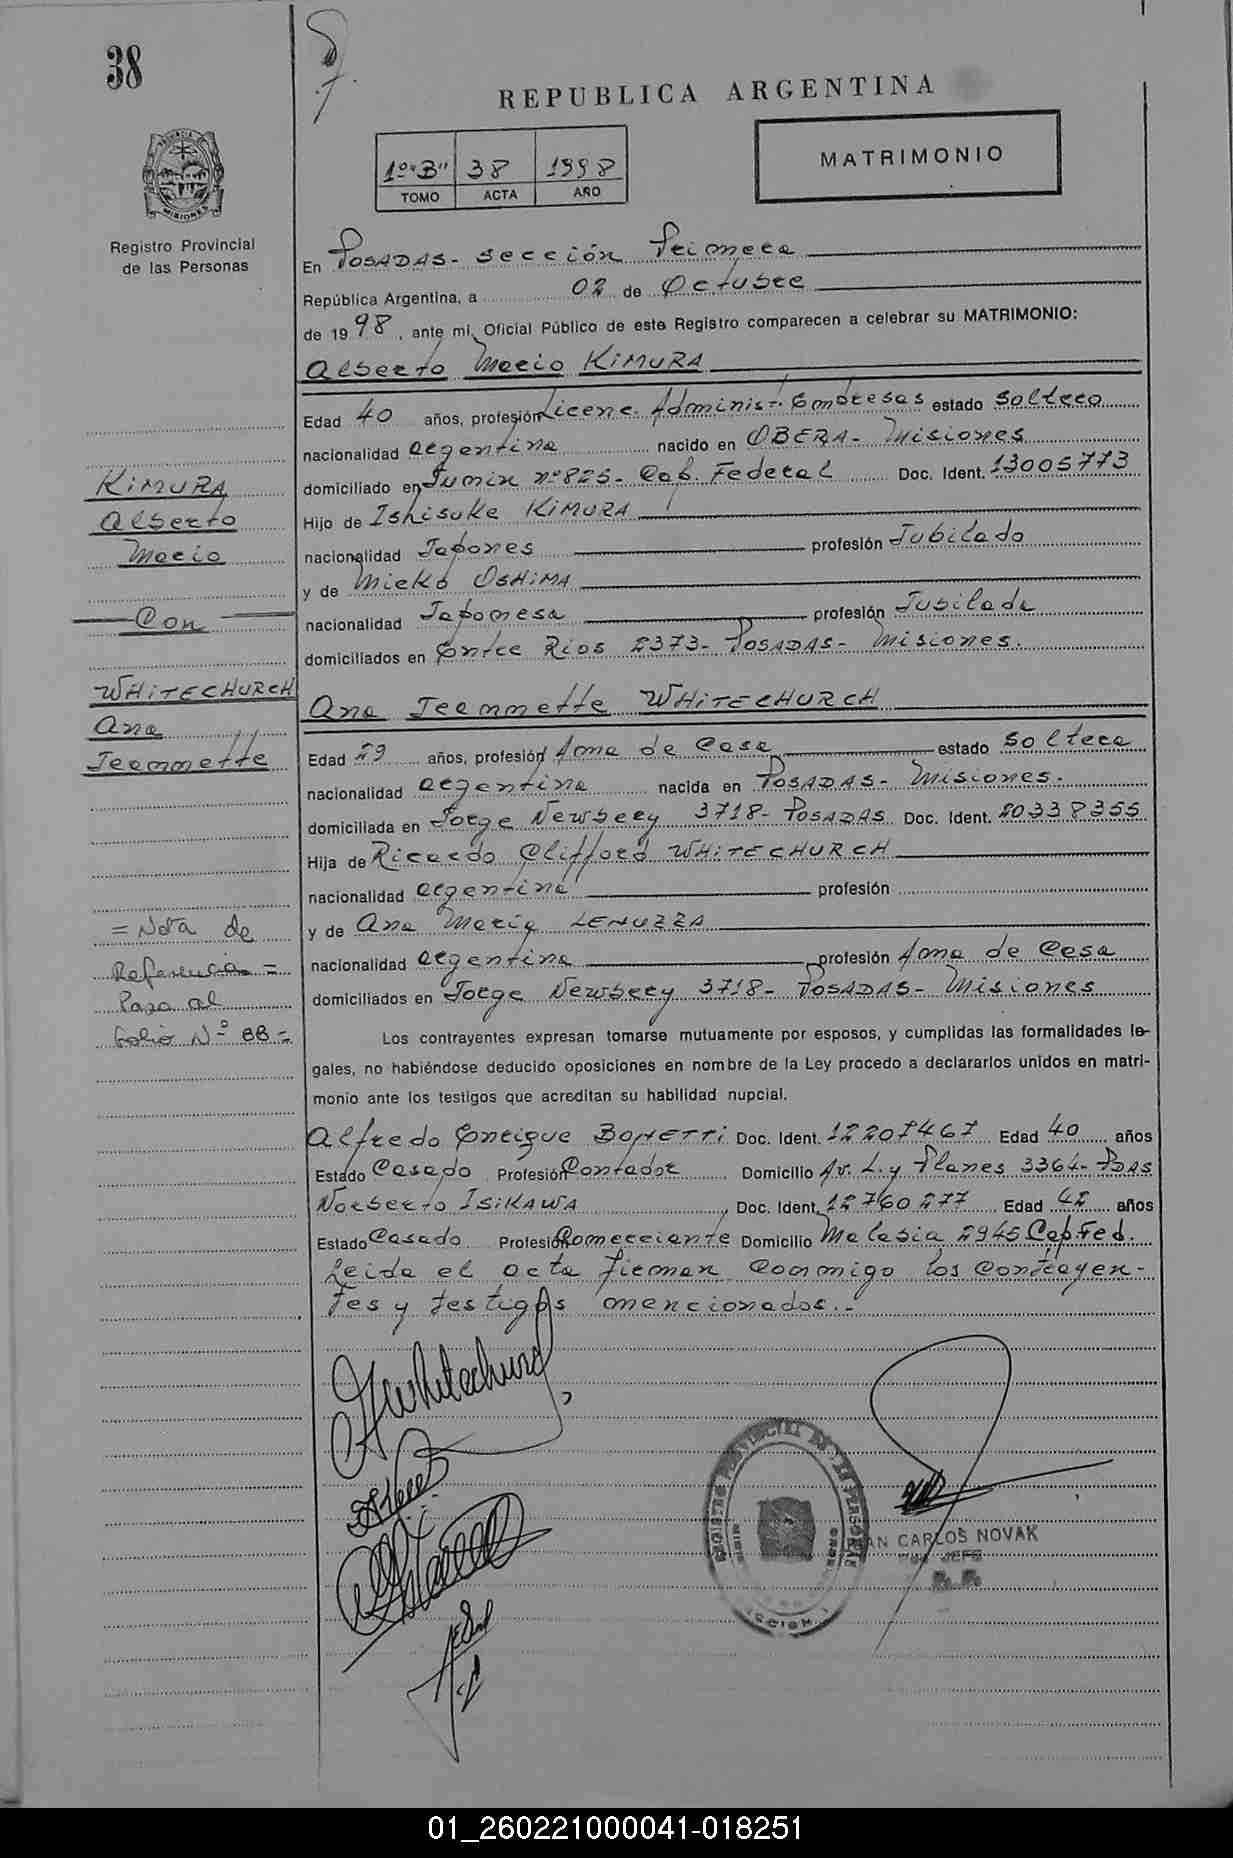 38
REPUBLICA ARGENTINA
1º "B" 38 1998
TOMO ACTA AÑO
MATRIMONIO
Registro Provincial
de las Personas
En POSADAS- Sección Primera
República Argentina, a 02 de Octubre
de 1998, ante mi, Oficial Público de este Registro comparecen a celebrar su MATRIMONIO:
Alberto Mario KIMURA
Edad 40 años, profesión Licenc. Administ. Empresas estado Soltero
nacionalidad argentina nacido en OBERA- Misiones
domiciliado en Junin nº 825- Cap. Federal Doc. Ident. 13005773
Hijo de Ishisuke KIMURA
nacionalidad Japones profesión Jubilado
y de Mieko OSHIMA
nacionalidad Japonesa profesión Jubilada
domiciliados en Entre Rios 2373- POSADAS- Misiones.
Ana Jeannette WHITECHURCH
Edad 29 años, profesión Ama de Casa estado Soltera
nacionalidad argentina nacida en POSADAS- Misiones.
domiciliada en Jorge Newbery 3718- POSADAS Doc. Ident. 20338355
Hija de Ricardo Clifford WHITECHURCH
nacionalidad argentina profesión
y de Ana Maria LENUZZA
nacionalidad argentina profesión Ama de Casa
domiciliados en Jorge Newbery 3718- POSADAS- Misiones
Los contrayentes expresan tomarse mutuamente por esposos, y cumplidas las formalidades le-
gales, no habiéndose deducido oposiciones en nombre de la Ley procedo a declararlos unidos en matri-
monio ante los testigos que acreditan su habilidad nupcial.
Alfredo Enrique BONETTI Doc. Ident. 12207467 Edad 40 años
Estado Casado Profesión Contador Domicilio Av. L. y Planes 3364- Pdas
Norberto ISIKAWA Doc. Ident. 12760277 Edad 42 años
Estado Casado Profesión Comerciante Domicilio Malabia 2945 Cap Fed.
Leida el acta firman conmigo los contrayen-
tes y testigos mencionados.-
KIMURA
Alberto
Mario
Con
WHITECHURCH
Ana
Jeannette
= Nota de
Referencia =
Pasa al
folio Nº BB =
REGISTRO PROVINCIAL DE LAS PERSONAS
CARLOS NOVAK
JEFE
01_260221000041-018251